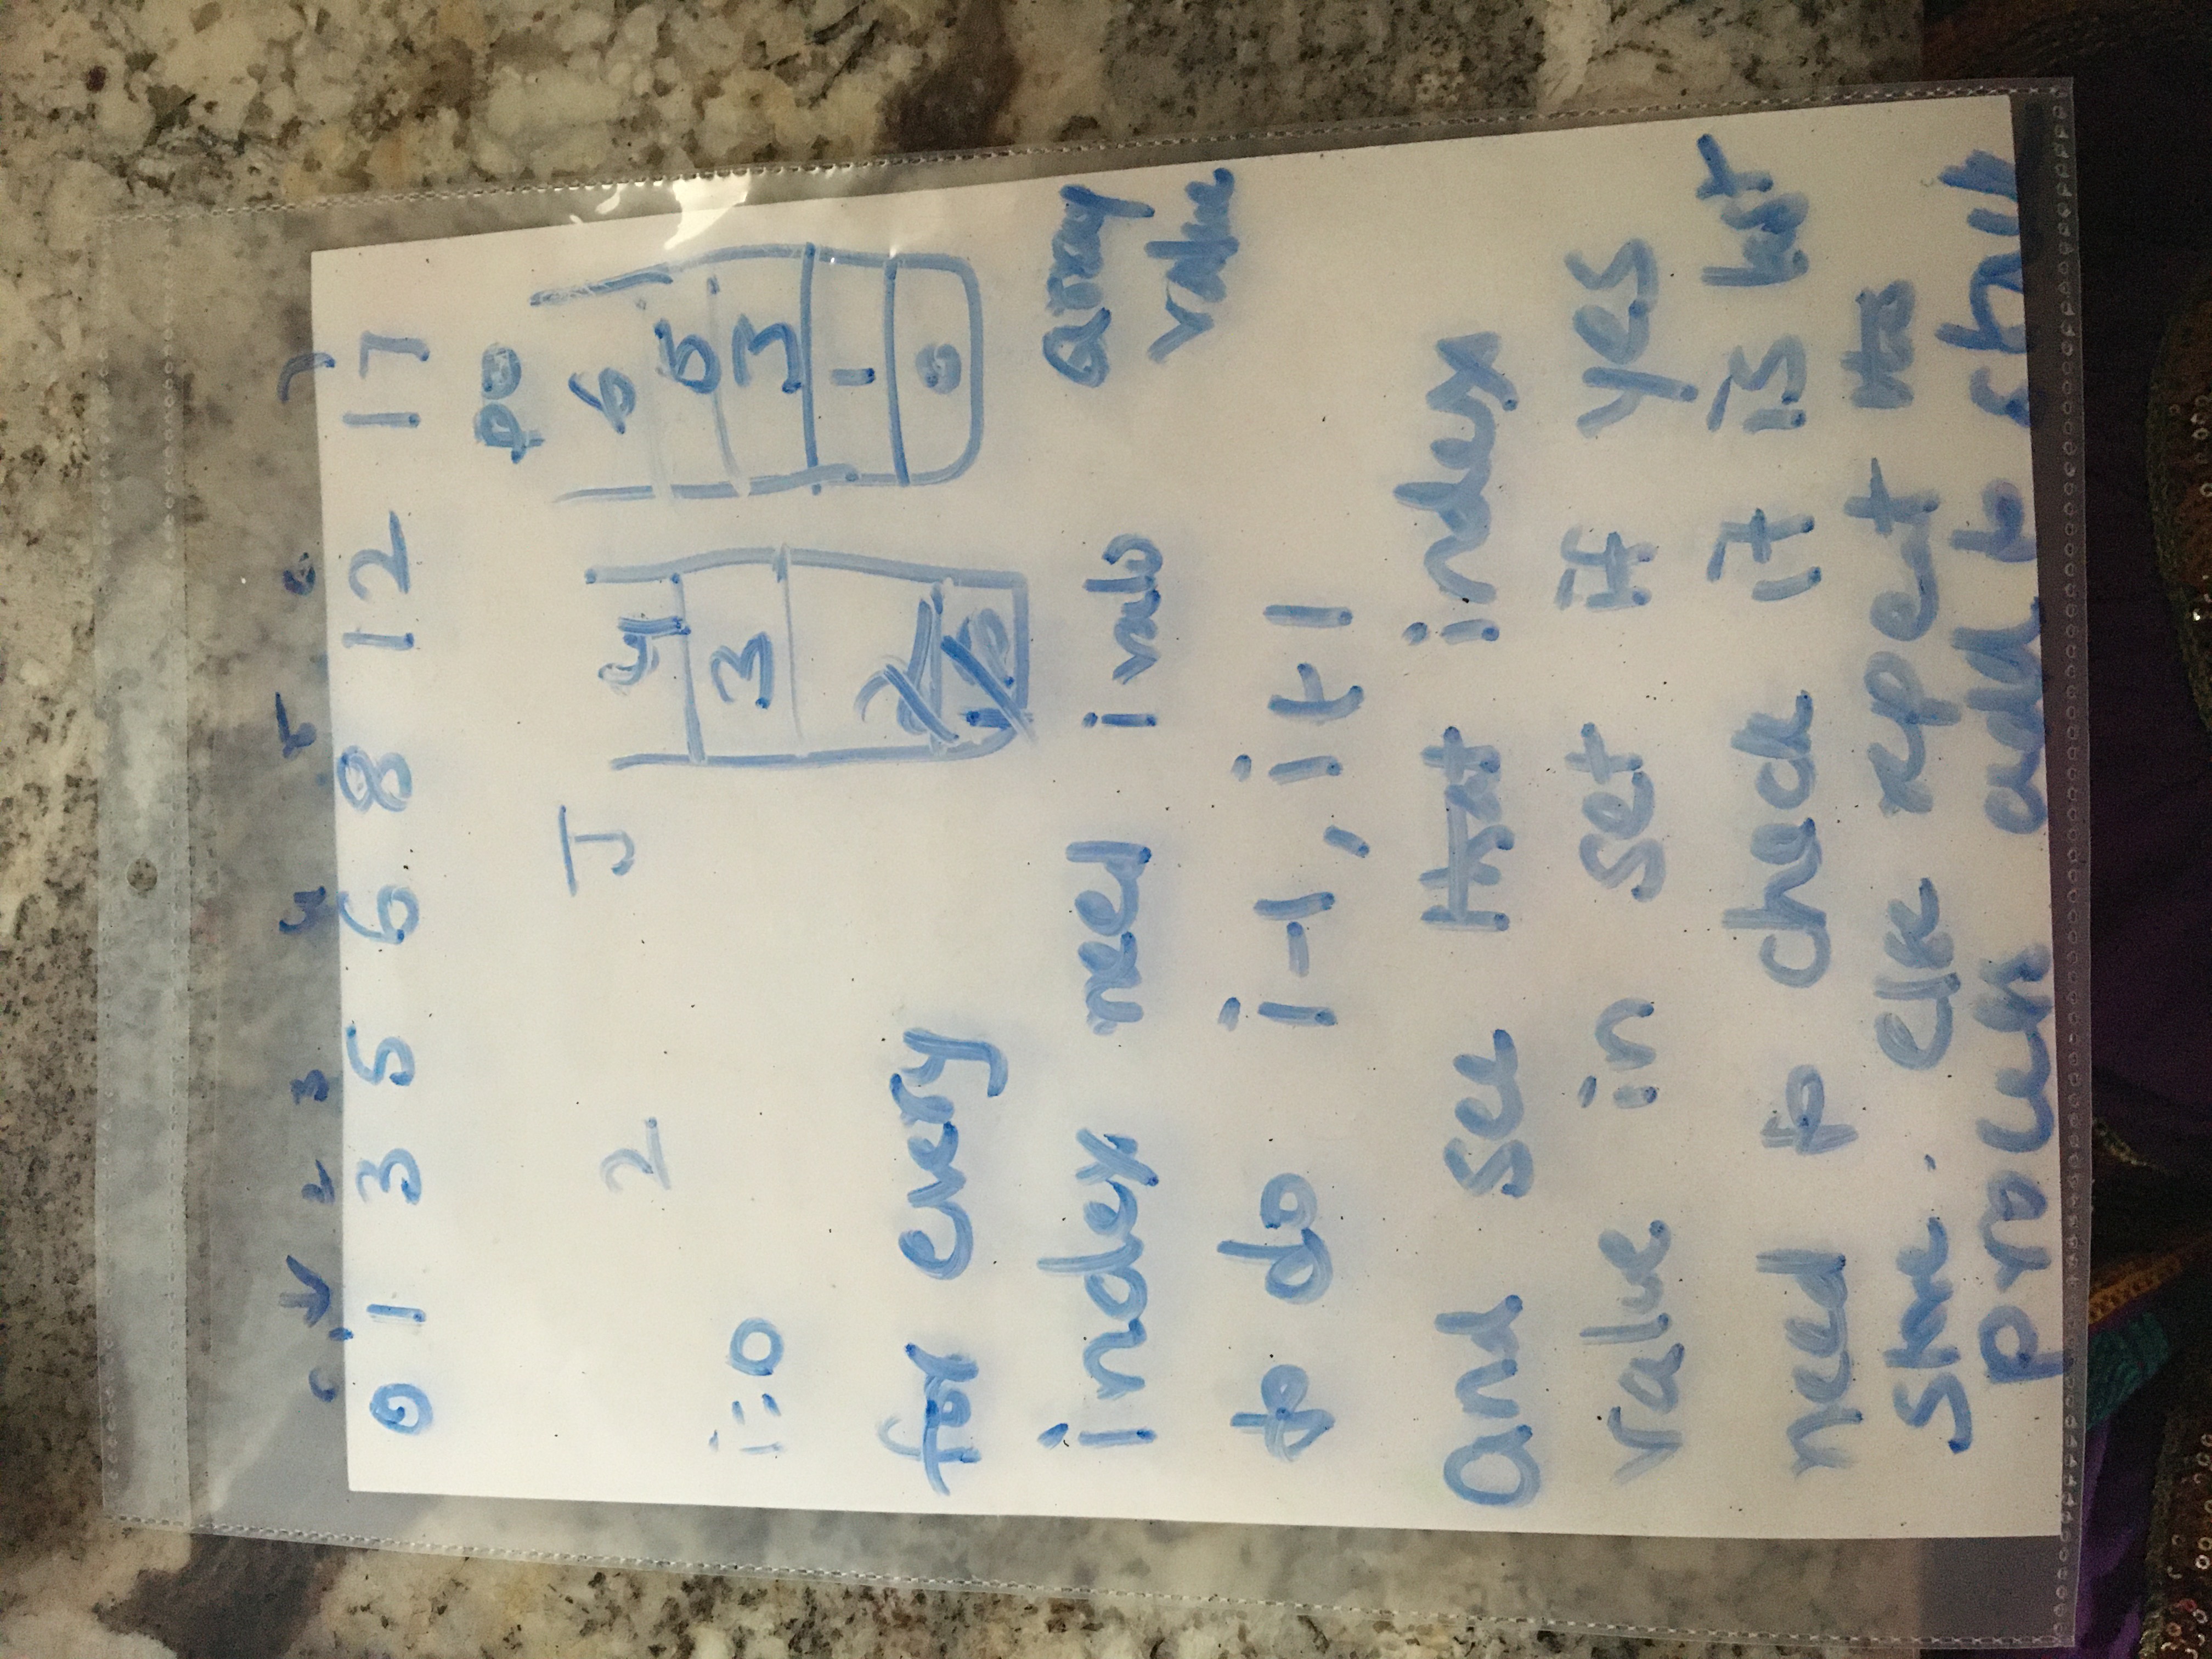 2 3 4 5 6 7
0 1 3 5 6 8 12 17
2 J 4 6
3 5
i=0 3
1
for every 0
index need i array
value
to do i-1, i+1
And see that index
value in set if yes
need to check it is last
stone. Else repeat the
process add to stack